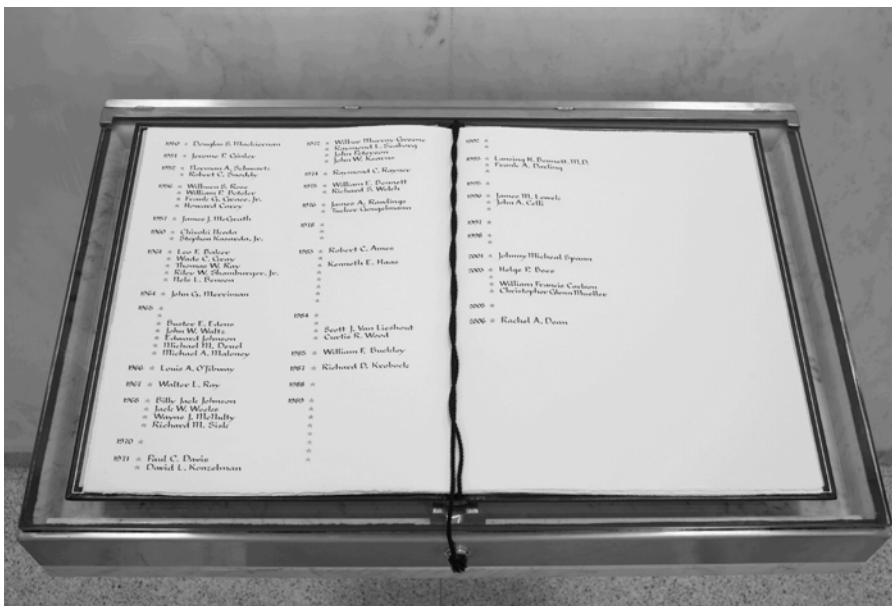 1950 ★ Douglas S. Mackiernan
1951 ★ Jerome P. Ginley
1952 ★ Norman A. Schwartz
★ Robert C. Snoddy
1956 ★ Wilburn S. Rose
★ William P. Boteler
★ Frank G. Grace, Jr.
★ Howard Carey
1957 ★ James J. McGrath
1960 ★ Chiyoki Ikeda
★ Stephen Kasarda, Jr.
1961 ★ Leo F. Baker
★ Wade C. Gray
★ Thomas W. Ray
★ Riley W. Shamburger, Jr.
★ Nels L. Benson
1964 ★ John G. Merriman
1965 ★
★
★ Buster E. Edens
★ John W. Waltz
★ Edward Johnson
★ Michael M. Deuel
★ Michael A. Maloney
1966 ★ Louis A. O'Jibway
1967 ★ Walter L. Ray
1968 ★ Billy Jack Johnson
★ Jack W. Weeks
★ Wayne J. McNulty
★ Richard M. Sisk
1970 ★
1971 ★ Paul C. Davis
★ David L. Konzelman
1972 ★ Wilbur Murray Greene
★ Raymond L. Seaborg
★ John Peterson
★ John W. Kearns
1974 ★ Raymond C. Rayner
1975 ★ William E. Bennett
★ Richard S. Welch
1976 ★ James A. Rawlings
★ Tucker Gougelmann
1978 ★
★
1983 ★ Robert C. Ames
★
★ Kenneth E. Haas
★
★
★
1984 ★
★ Scott J. Van Lieshout
★ Curtis R. Wood
1985 ★ William F. Buckley
1987 ★ Richard D. Krobock
1988 ★
1989 ★
★
★
★
★
★
★
1992 ★
★
1993 ★ Lansing H. Bennett, M.D.
★ Frank A. Darling
1995 ★
1996 ★ James M. Lewek
★ John A. Celli
1997 ★
1998 ★
★
2001 ★ Johnny Micheal Spann
2003 ★ Helge P. Boes
★ William Francis Carlson
★ Christopher Glenn Mueller
2005 ★
2006 ★ Rachel A. Dean